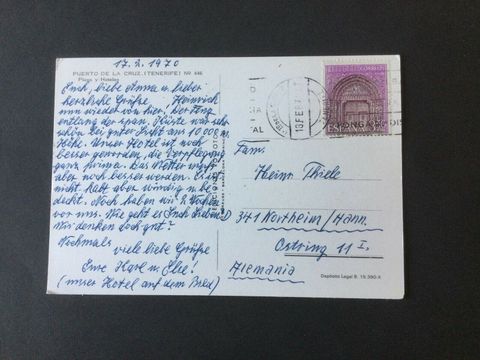 17.2.1970
PUERTO DE LA CRUZ. (TENERIFE) Nº 446
Playa y Hoteles
Euch, liebe Anna u. lieber
Heinrich
herzliche Grüße
nun wieder von hier. Der Flug
entlang der span. Küste war sehr
schön bei guter Sicht aus 10 000 m
Höhe. Unser Hotel ist noch
besser geworden, die Verpflegung
ganz prima. Das Wetter muß
aber noch besser werden. Es ist
nicht kalt aber windig u. be
deckt. Noch haben wir 2 Wochen
vor uns. Wie geht es Euch Lieben?
Wir denken doch gut?
Nochmals
viele liebe Grüße
Eure Karl u. Else!
(unser Hotel auf dem Bild)
ESPAÑA
CORREOS
Fam.
Heinr. Thiele
341 Northeim/Hann.
Ostring 11 I.
Alemania
Depósito Legal B. 15.390-X